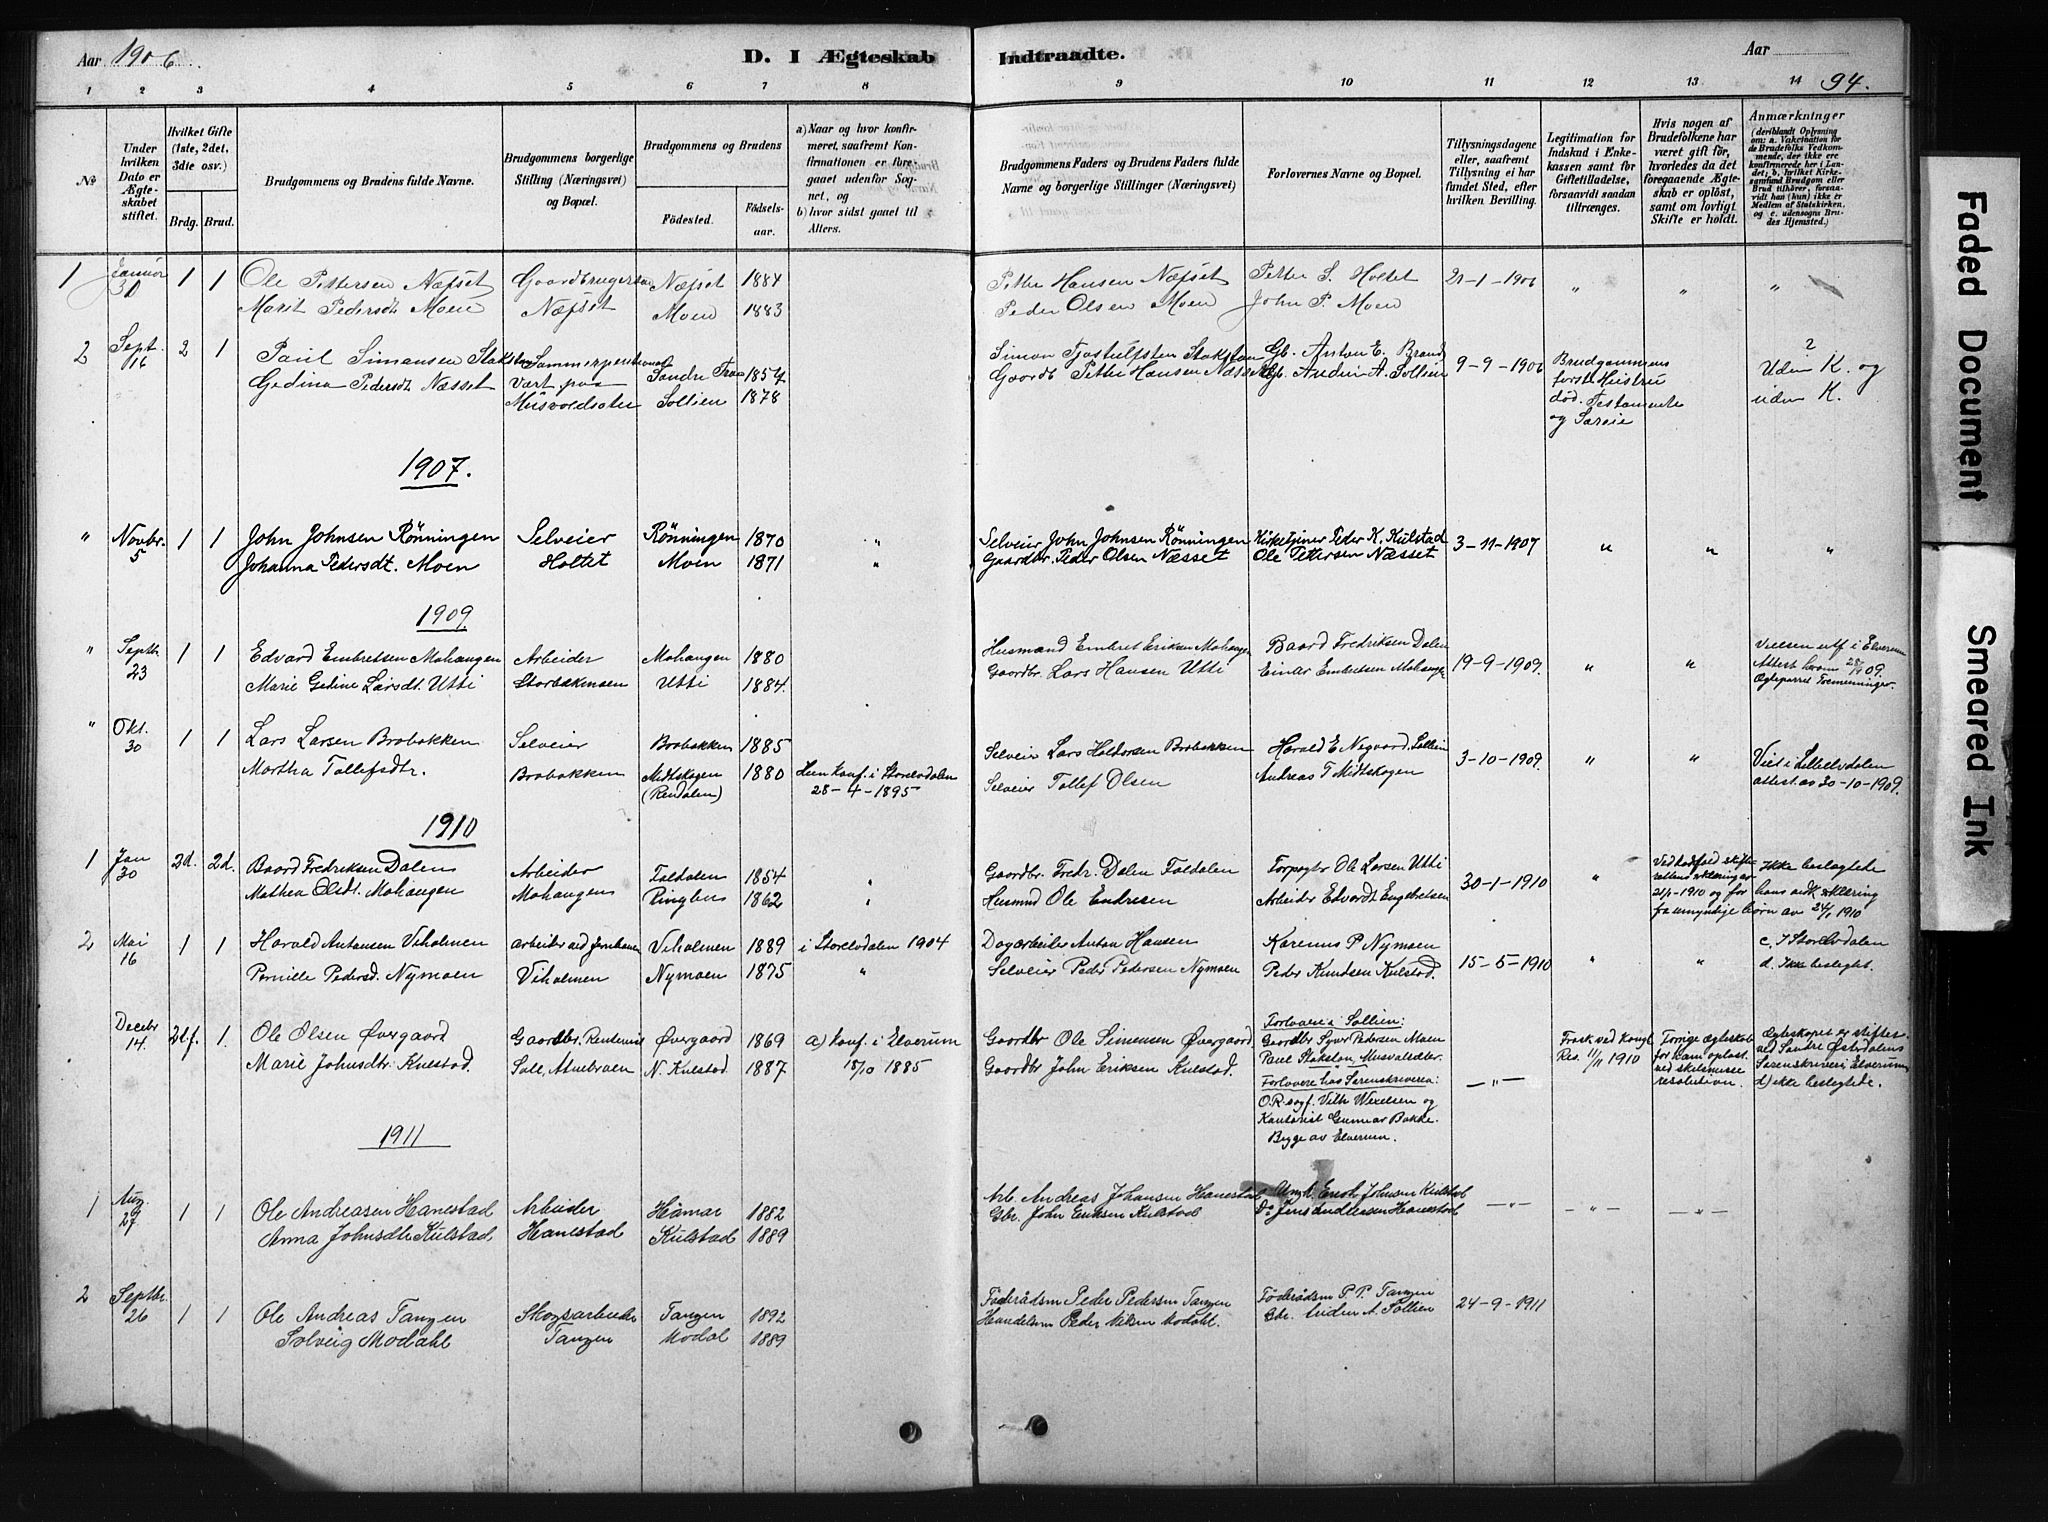 Aar 1906.
D. I Ægteskab
Indtraadte.
Aar
94.
1 2 3 4 5 6 7 8 9 10 11 12 13 14
No
Under hvilken Dato er Ægteskabet stiftet.
Hvilket Gifte (1ste, 2det, 3die osv.)
Brdg. Brud.
Brudgommens og Brudens fulde Navne.
Brudgommens borgerlige Stilling (Næringsvei) og Bopæl.
Brudgommens og Brudens
Födested.
Födselsaar.
a) Naar og hvor konfirmeret, saafremt Konfirmationen er foregaaet udenfor Sognet, og
b) hvor sidst gaaet til Alters.
Brudgommens Faders og Brudens Faders fulde Navne og borgerlige Stillinger (Næringsvei)
Forlovernes Navne og Bopæl.
Tillysningsdagene eller, saafremt Tillysning ei har fundet Sted, efter hvilken Bevilling.
Legitimation for Indskud i Enkekassen samt for Giftetilladelse, forsaavidt saadan tiltrænges.
Hvis nogen af Brudefolkene har været gift för, hvorledes da det foregaaende Ægteskab er oplöst, samt om lovligt Skifte er holdt.
Anmærkninger (deriblandt Oplysning om: a. Vaccination for de Brudefolks Vedkommende, der ikke ere konfirmerede her i Landet; b. hvilket Kirkesamfund Brudgom eller Brud tilhörer, forsaavidt han (hun) ikke er Medlem af Statskirken, og c. udensogns Brudes Hjemsted.)
1 Januar 30 1 1 Ole Pettersen Næfset Gaardbruger Næfset 1884 Petter Hansen Næfset Petter S. Holtet 21-1-1906 " " "
Marit Pedersdt. Moen Næfset Moen 1883 Peder Olsen Moen John P. Moen
2 Sept. 16 2 1 Paul Simansen Stakston Sommerpensionat Söndre 1854 Simon 9-9-1906 Brudgommens Uden K. og
Gedina Pedersdt. Næsset vært paa Misvoldsæter Sollien 1878 Gaardb. Petter Hansen Næsset første Hustru død. Testamente og Særeie uden K.
1907.
" Novbr. 5 1 1 John Johnsen Rönningen Selveier Rönningen 1870 " Selveier John Johnsen Rönningen Kirketjener Peder K. Kulstad 3-11-1907 " " "
Johanna Pedersdt. Moen Holtet Moen 1871 " Gaardbr. Peder Olsen Næsset Ole Pettersen Næsset
1909.
" Septbr. 23 1 1 Edvard Embretsen Mohaugen Arbeider Mohaugen 1880 Husmand Embret Eriksen Mohaugen Baard Fredriksen Dalen 19-9-1909. " " Vielsen utf i Elverum
Marie Gedine Larsdt. Utti Storbækmoen Utti 1884. Gaardbr. Lars Hansen Utti Einar Embretsen Mohaugen Attest herom 28/9 09. Ægteparret Tremenninger.
" Okt. 30 1 1 Lars Larsen Brobakken Selveier Brobakken 1885 Selveier Lars Haldorsen Brobakken Harald E. Negaard, Sollien 3-10-1909. " " Viet i Lilleelvdalen
Martha Tollefsdtr. Brobakken Midtskogen (Rendalen) 1880 Hun konf. i Storelvdalen 28-4-1895 Selveier Tollef Olsen Andreas T Midtskogen attest av 30-10-1909.
1910
1 Jan 30 2d. 2d. Baard Fredriksen Dalen Arbeider Foldalen 1854 " Gaardbr. Fredr. Dalen Foldalen Forpagtr Ole Larsen Utti 30-1-1910 " Ved dödsfald skifterettens erklæring av 21/1-1910 og for fu umyndige børn av Ikke beslegtede
Mathea Olsdt. Mohaugen Mohaugen Ringbu 1862 " Husmnd Ole Endresen Arbeider Edvardt Engebretsen hans erklæring 24/1 1910
2 Mai 16 1 1 Harald Antonsen Veholmen arbeider ved Jernbanen Veholmen 1889 i Storelvdalen 1904 Dagarbeider Anton Hansen Karenus P Nymoen 15-5-1910 " " c. I Storelvdalen
Pernille Pedersd. Nymoen Veholmen Nymoen 1875 " Selveier Peder Pedersen Nymoen Peder Knudsen Kulstad. d. Ikke beslegtet
Decebr 14. 2d.f. 1. Ole Olsen Øvergaard Gaardbr. Rentenist Øvergaard 1869 a) Konf. i Elverum 18/10 1885 Gaardbr Ole Simensen Øvergaard Forlovere i Sollien: Gaardbr Syver Pedersen Moen Paul Stakston, Misvaldsæter. — " — Frask. ved Kongl. Res. 11/11 1910 Forrige ægteskab for ham opløst ved skilsmisseresolution. Ægteskapet er stiftet ved Søndre Østerdalens Sorenskriveri, Elverum
Marie Johnsdtr. Kulstad. Soll. Atnebroen N. Kulstad 1887 Gaardbr John Eriksen Kulstad. Forlovere hos Sorenskriveren: O.R.sagf. Veth Wexelsen og Kontorist Gunnar Bakke. Begge av Elverum. d) ikke beslegtede.
1911
1 Aug 27 1 1 Ole Andreasen Hanestad Arbeider Hamar 1882 Arb. Andreas Johansen Hanestad Ungk. Johnsen Kulstad — " — — " — — " —
Anna Johnsdtr Kulstad Hanestad Kulstad 1889 Gbr. John Eriksen Kulstad Do Jens Andreasen Hanestad
2 Septbr. 26 1 1 Ole Andreas Tangen Skogsarbeider Tangen 1892 Föderådsm Peder Pedersen Tangen Föderådsm P. P. Tangen 24-9-1911
Solveig Modahl Tangen Modal 1889 Handelsm Peder Modahl. Gbr. A. Sollien
Faded Document
Smeared Ink